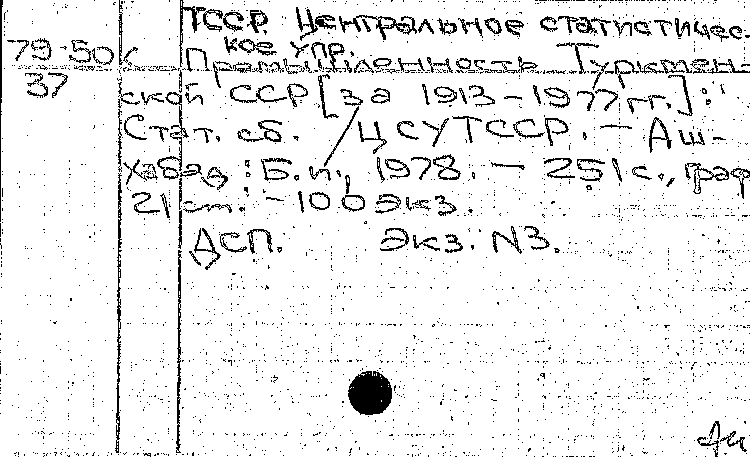 ТССР. Центральное статистичес-
кое упр.
79-50с
37
Промышленность Туркмен-
ской ССР [за 1913-1977 гг.]:
Стат. сб. / ЦСУ ТССР. - Аш-
хабад: Б.и., 1978. - 251 с., граф
21 cm. - 100 экз.
ДСП. Экз. N3.